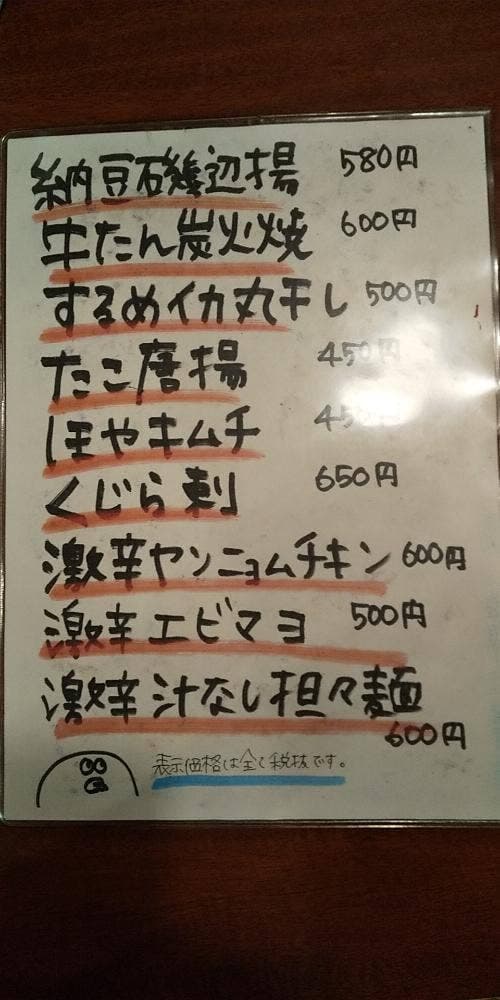 納豆磯辺揚 580円
牛たん炭火焼 600円
するめイカ丸干し 500円
たこ唐揚 450円
ほやキムチ
くじら刺 650円
激辛ヤンニョムチキン 600円
激辛エビマヨ 500円
激辛 汁なし担々麺
600円
表示価格は全て税抜です。